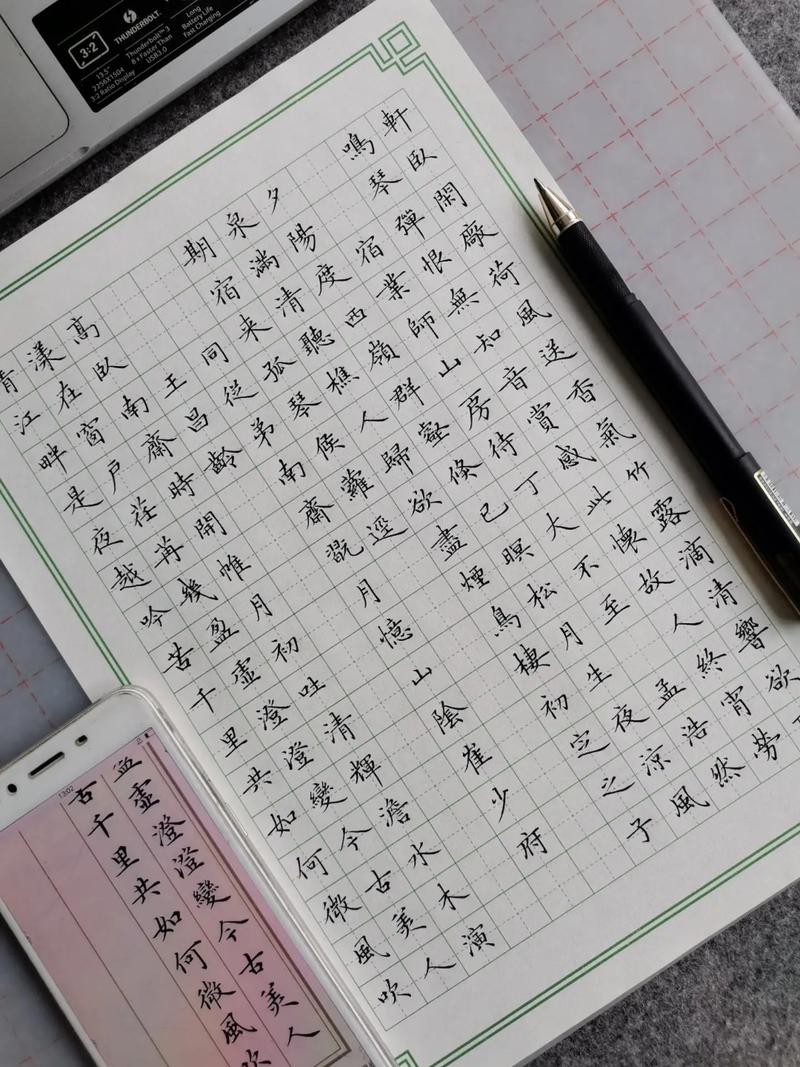 軒臥閑廠荷風送香氣竹露滴清響欲
鳴琴彈恨無知音賞感此懷故人終宵勞
宿業師山房待丁大不至孟浩然
夕陽度西嶺群壑倏已暝松月生夜涼風
泉滿清聽樵人歸欲盡煙鳥棲初定之子
期宿來孤琴候蘿逕
同從弟南齋翫月憶山陰崔少府
王昌齡
高臥南齋時開帷月初吐清輝澹水木演
漾在窗戶荏苒幾盈虛澄澄變今古美人
清江畔是夜越吟苦千里共如何微風吹
盈虛澄澄變今古美人
苦千里共如何微風吹
13:02
3:2
13.5"
2256X1504
3:2 Ratio Display
THUNDERBOLT.
Thunderbolt™ 3
8 x Faster Than
USB3.0
Long
Battery Life
Fast Charging